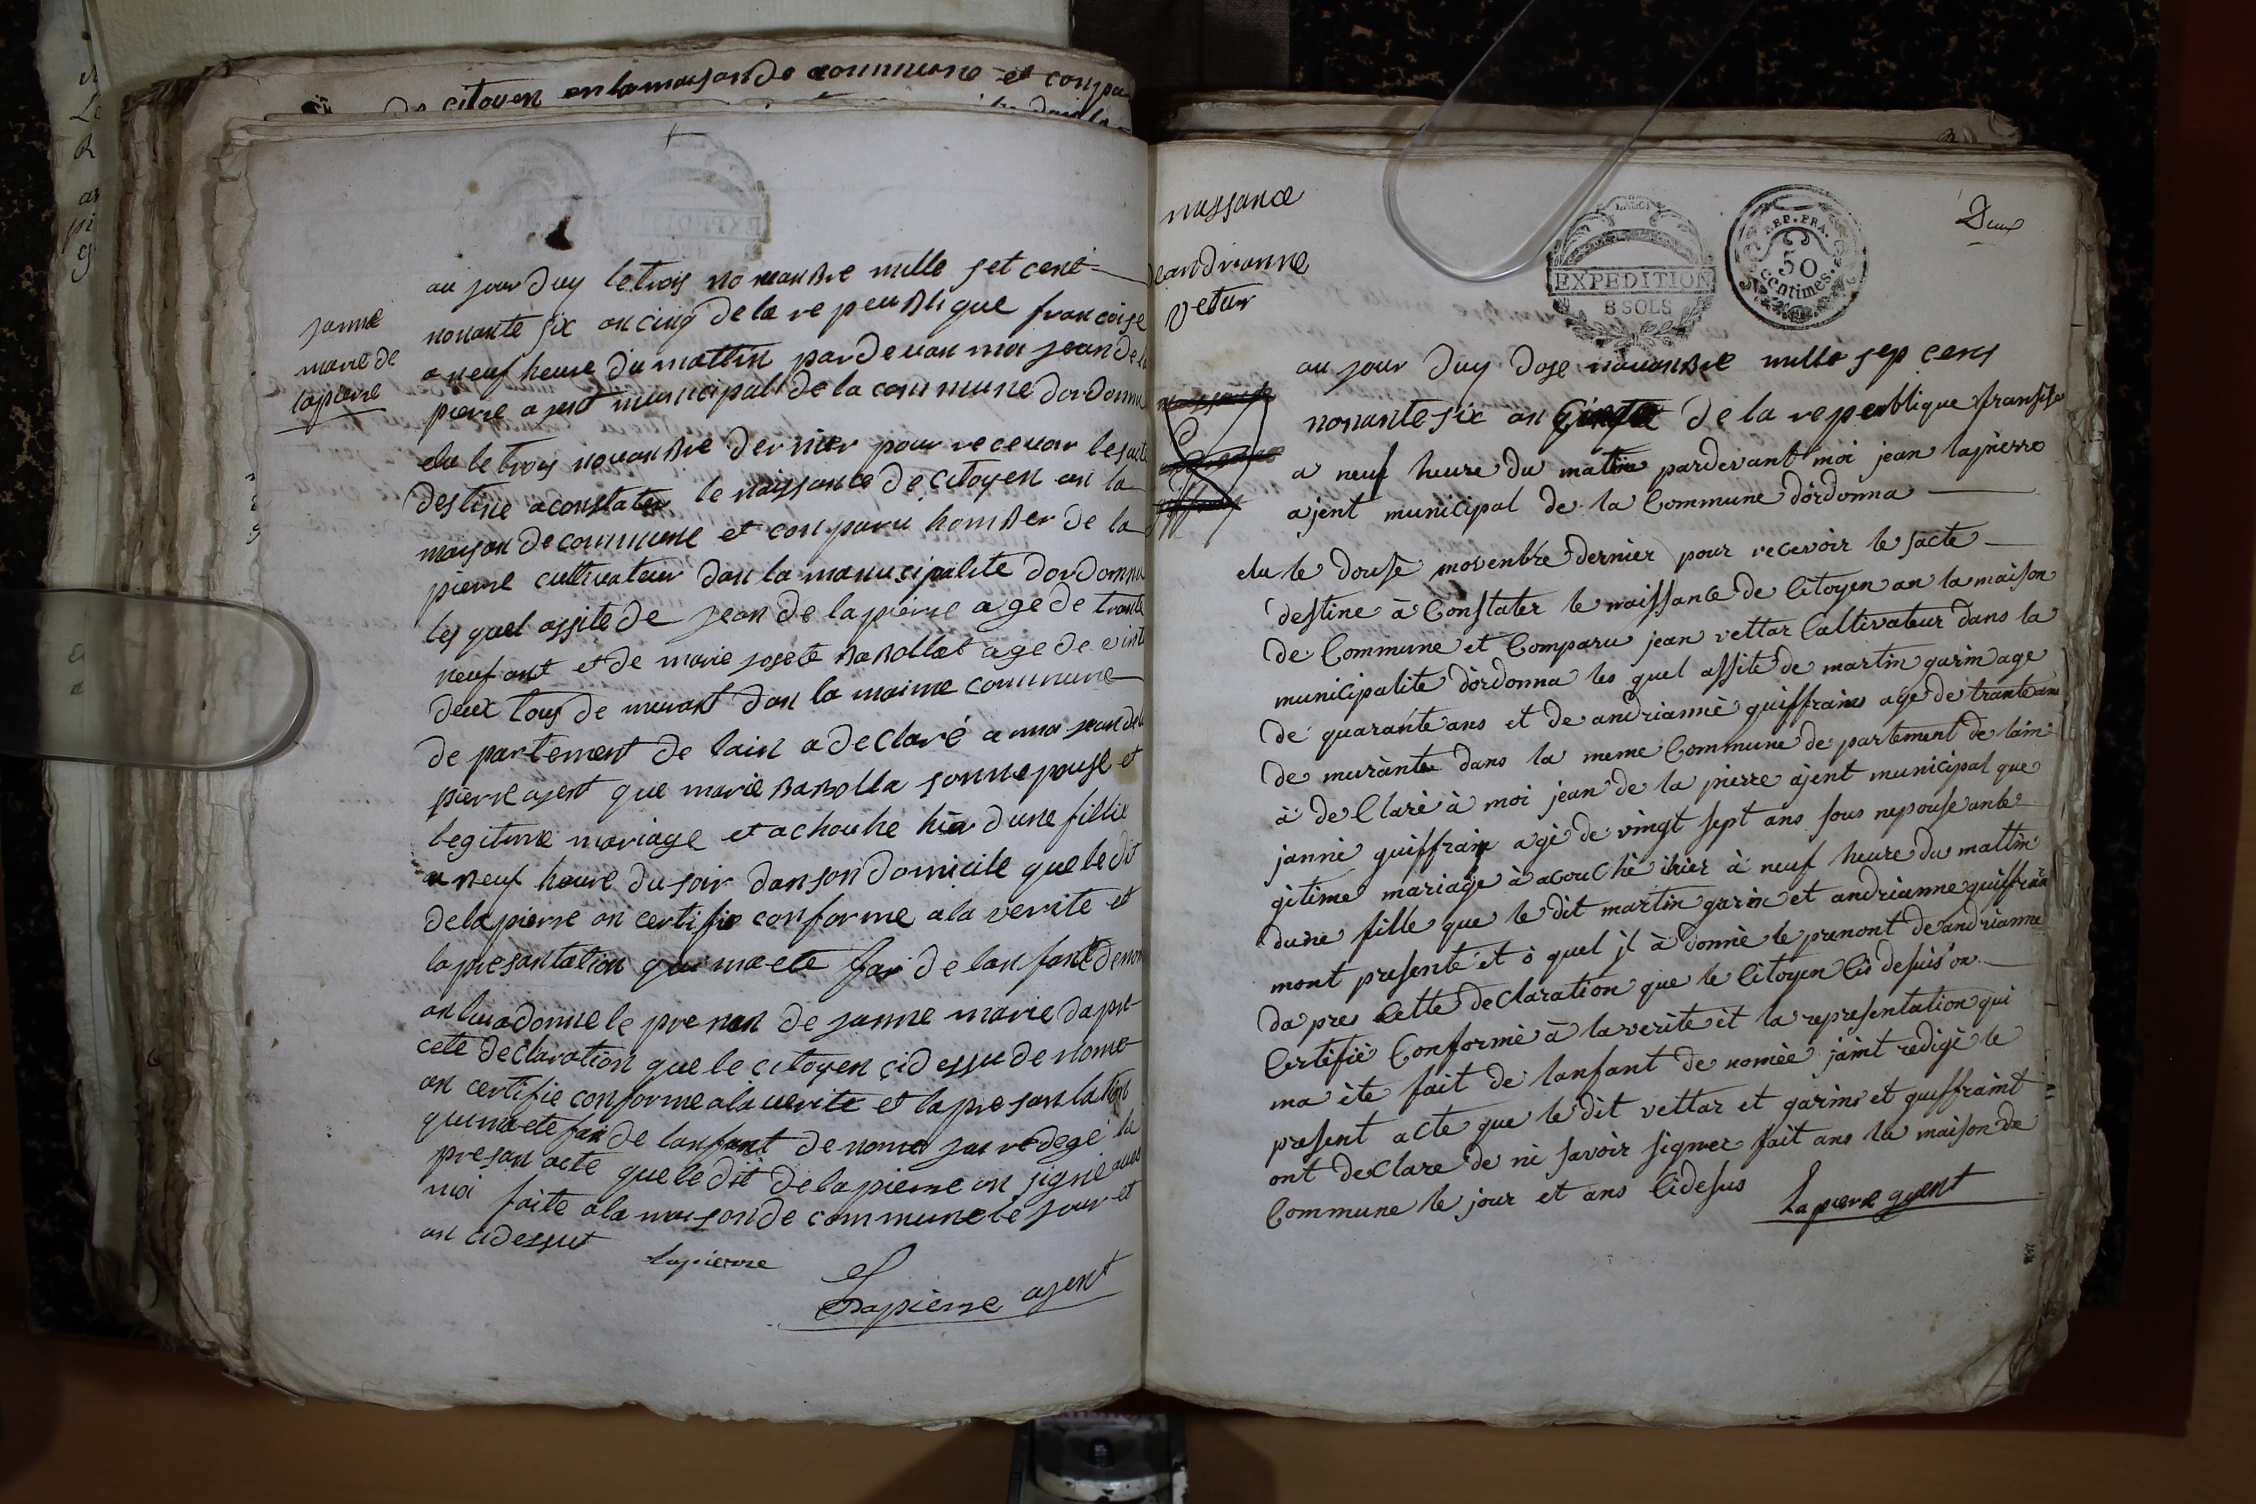 de citoyen en la maison de commune et conpa
janne
marie de
lapierre
au jour duy le trois novanbre mille set cent
nonante six an cinq de la repeublique francoise
a neuf heure du mattin pardevan moi jean de la
pierre ajent municipal de la commune dordonna
elu le trois novanbre dernier pour recevoir le sacte
destine a constater le naissanse de citoyen an la
maison de commune et conparu honber de la
pierre cultivateur dan la manucipalite dordonna
les quel assite de jean de la pierre age de trante
neuf ant et de marie josete Babollat age de vint
deux tous de murant dan la maime commune
de partement de lain a declaré a moi jean de la
pierre ajent que marie Babolla sonne pouse et
legitime mariage et achouhe hier dune fillie
a neuf heure du soir dan son domicile que le dit
de la pierre an certifie conforme a la verite et
la presantation qui ma ete fai de lan fant denom
an lui a donne le prenon de janne marie dapre
cete declaration que le citoyen cidessu de nome
an certifie conforme a la verite et la presantation
qui ma ete fai de lanfant de nome jai redegé la
presan acte que le dit de la pierre an signe avec
moi faite a la maison de commune le jour et
an cidessut
lapierre
Lapierre ajent
naissance
deandrianne
vetar
EXPEDITION
8 SOLS
REP. FRA.
50
centimes.
Deux
au jour duy dose novanbre mille sep cens
nonante six an de la repeublique fransise
a neuf heure du matin pardevant moi jean lapierre
ajent municipal de la Commune dordonna
elu le douse novenbre dernier pour recevoir le sacte
destine à Constater le naissante de Citoyen an la maison
de Commune et Comparu jean vettar Caltivateur dans la
municipalite dordonna les quel assite de martin garin age
de quarante ans et de andrianne guiffrains age de trante ans
de murante dans la meme Commune de partement de lain
à de Claré à moi jean de la pierre ajent municipal que
janne guiffrain agé de vingt sept ans sous nepouse ante
gitime mariage à acouChé ihier à neuf heure du mattin
dune fille que le dit martin garin et andrianne guiffrain
mont presenté et o quel jl à donné le prenont de andrianne
da pres Cette deClaration que le Citoyen Cis desuis on
Certifié Conforme à la verite et la representation qui
ma ete fait de lanfant de nomée jaint redigé le
present acte que le dit vettar et garins et guiffraint
ont deClare de ni savoir signer fait ans la maison de
Commune le jour et ans Cidesus
Lapierre ajent